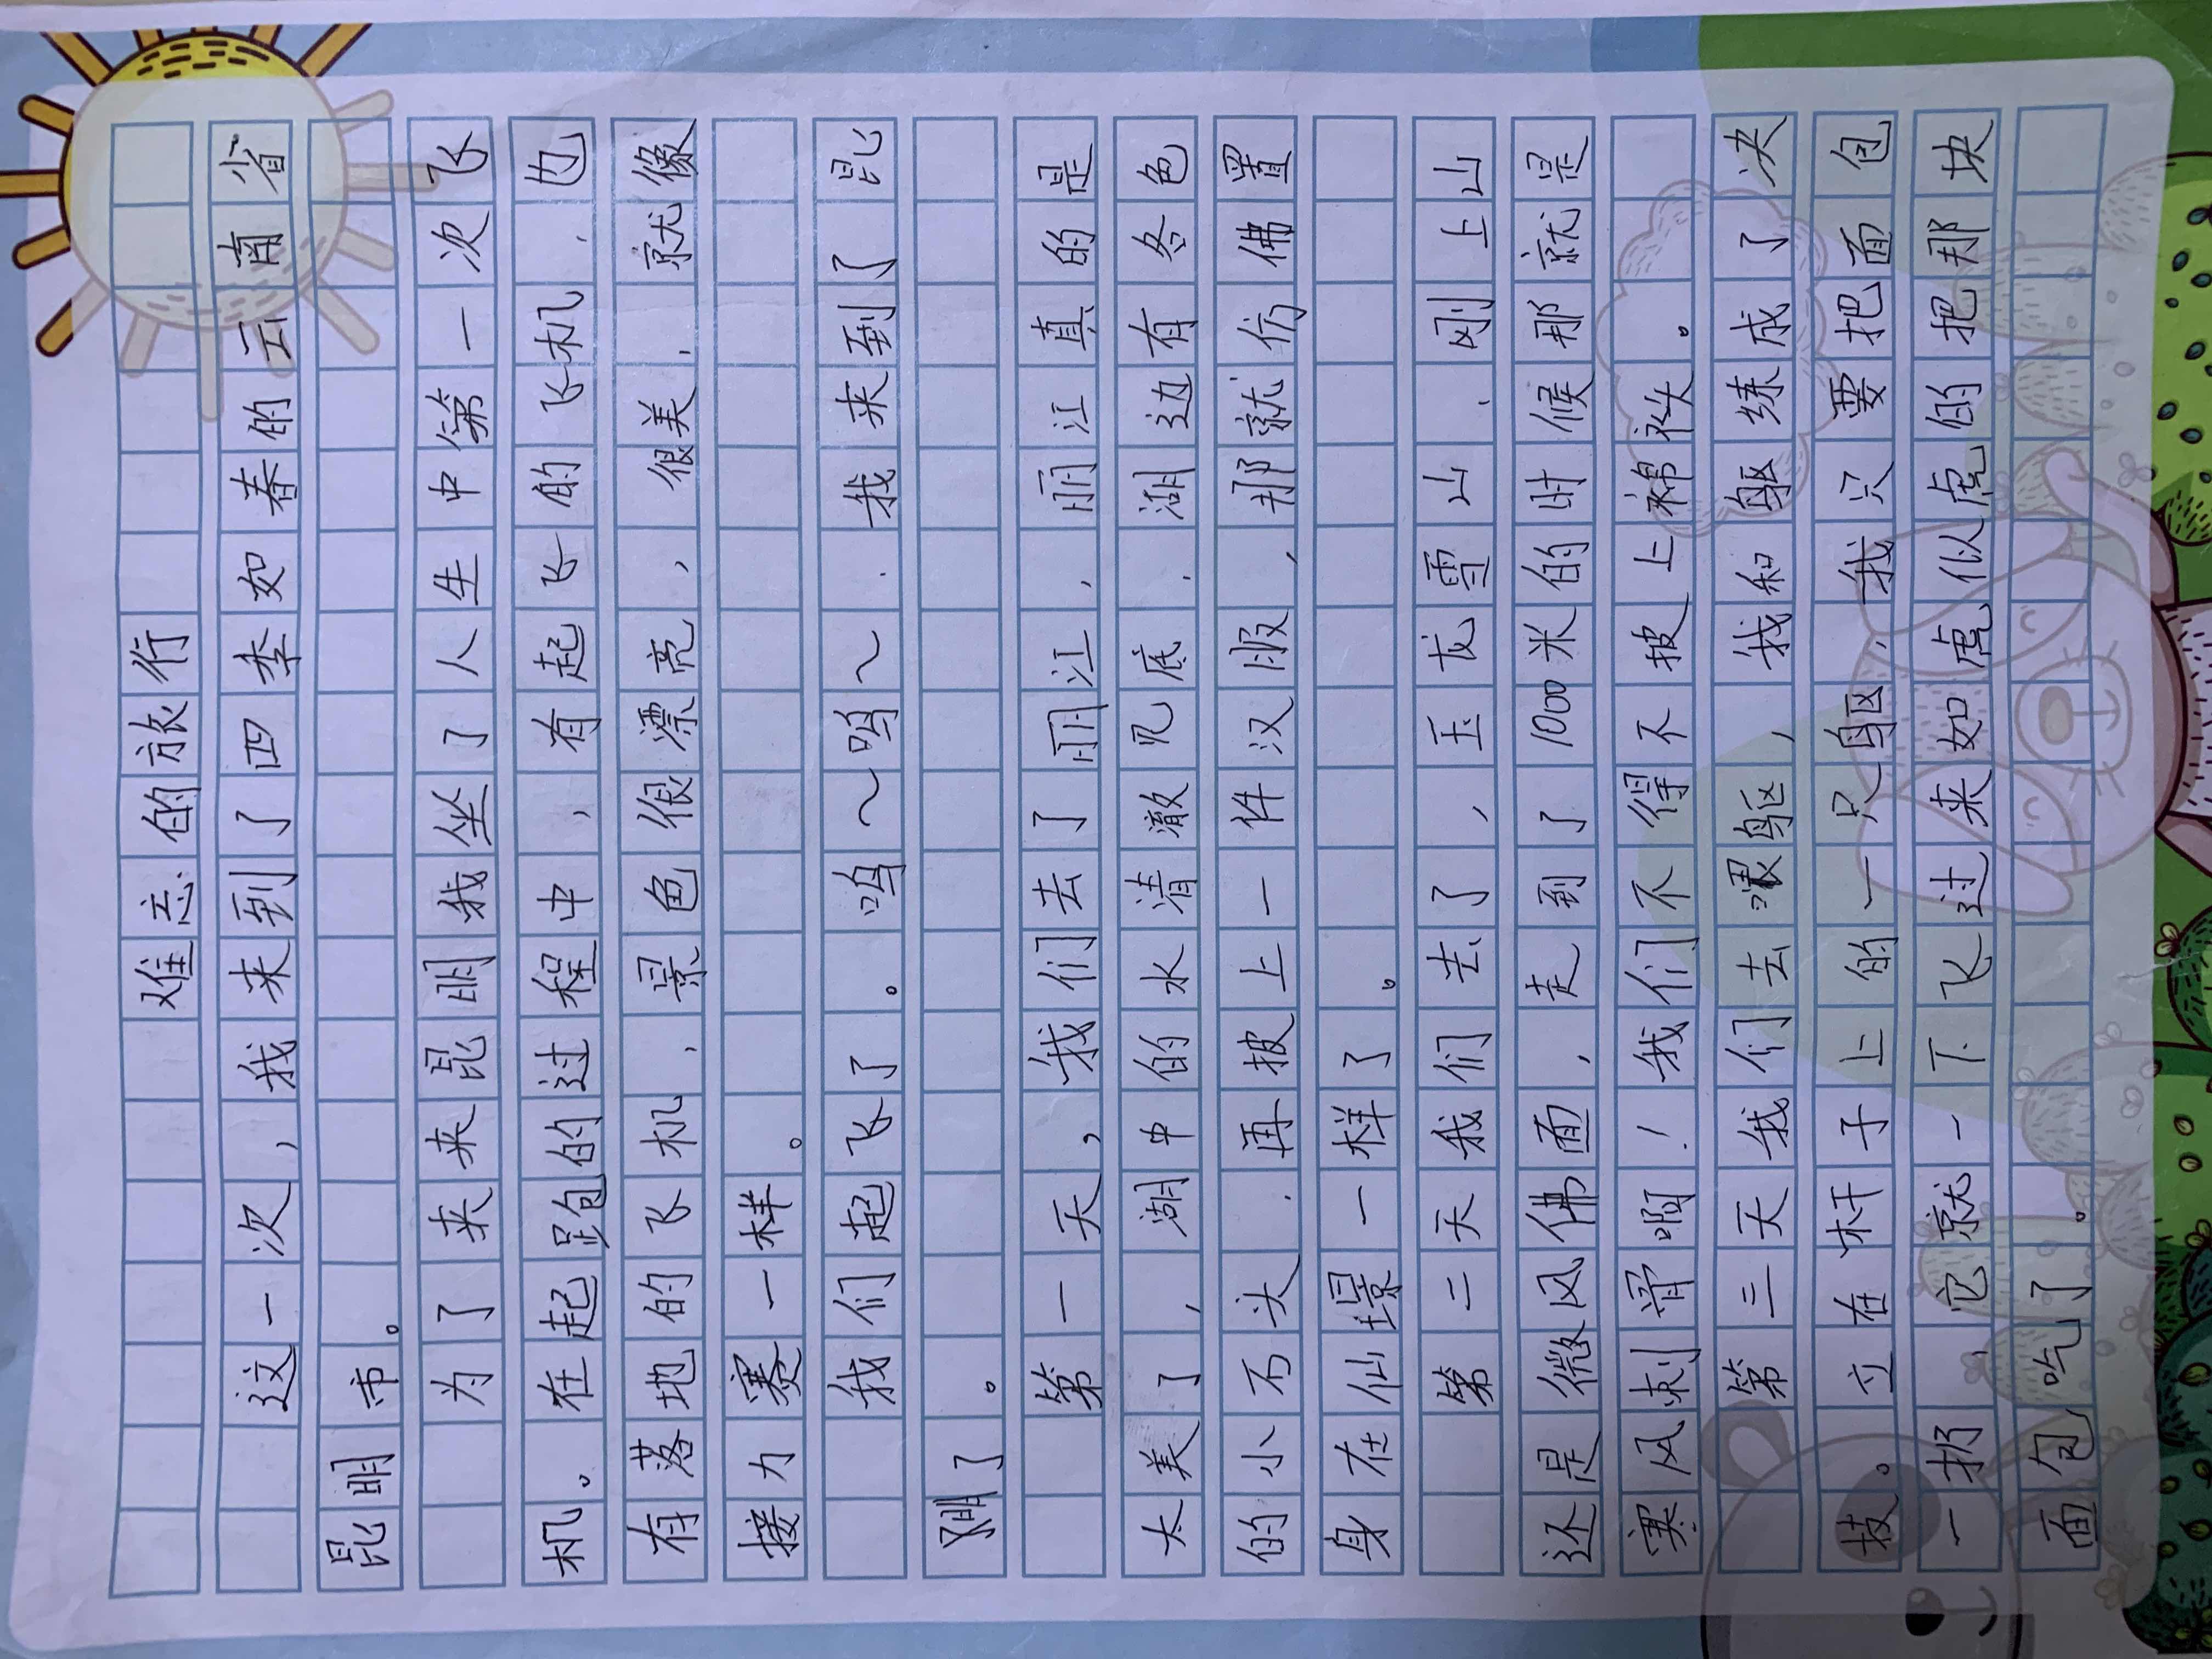 难忘的旅行
这一次，我来到了四季如春的云南省
昆明市。
为了来来昆明我坐了人生中第一次飞
机。在起跑的过程中，有起飞的飞机，也
有落地的飞机，景色很漂亮，很美，就像
接力赛一样。
我们起飞了。呜～呜～，我来到了昆
明了。
第一天，我们去了丽江，丽江真的是
太美了，湖中的水清澈见底，湖边有各色
的小石头，再披上一件汉服，那就仿佛置
身在仙境一样了。
第二天我们去了，玉龙雪山，刚上山
还是微风佛面，走到了1000米的时候那就是
寒风刺骨啊！我们不得不披上棉袄。
第三天我们去喂躯，我和躯练成了决
技。立在杆子上的一只躯，我只要把面包
一扔，它就一下飞过来如虎似虎的把那块
面包吃了。